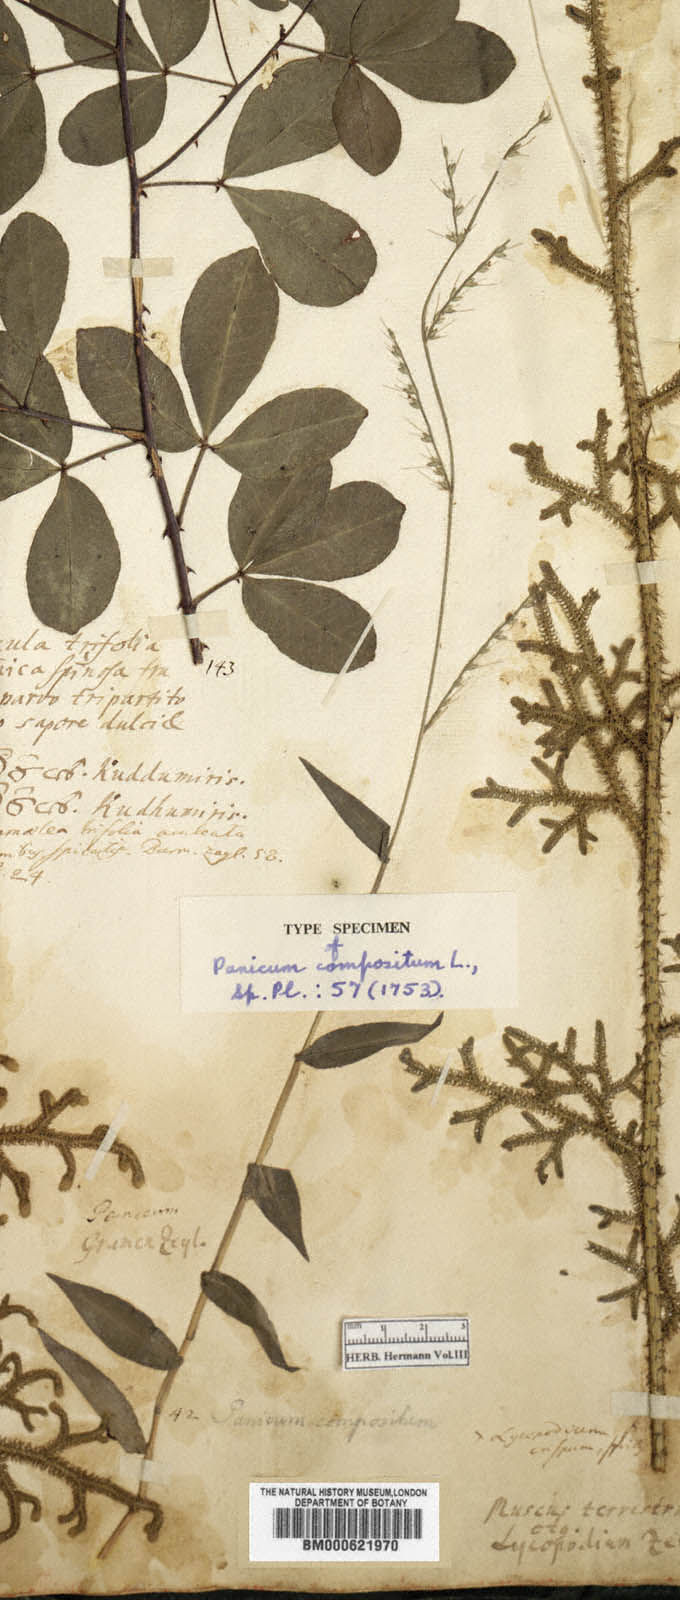 trifolia
spinosa
143
parvo tripartito
sapore dulci &
Kuddumiris.
Kudhumiris.
trifolia aculeata
Burm. zeyl. 58.
24.
TYPE SPECIMEN
of
Panicum compositum L.,
Sp. Pl. : 57 (1753).
Panicum
Gramen Zeyl.
mm 1 2 3
HERB. Hermann Vol.III
42 Panicum compositum
Lycopodium
Muscus terrestris
Lycopodium
THE NATURAL HISTORY MUSEUM,LONDON
DEPARTMENT OF BOTANY
BM000621970